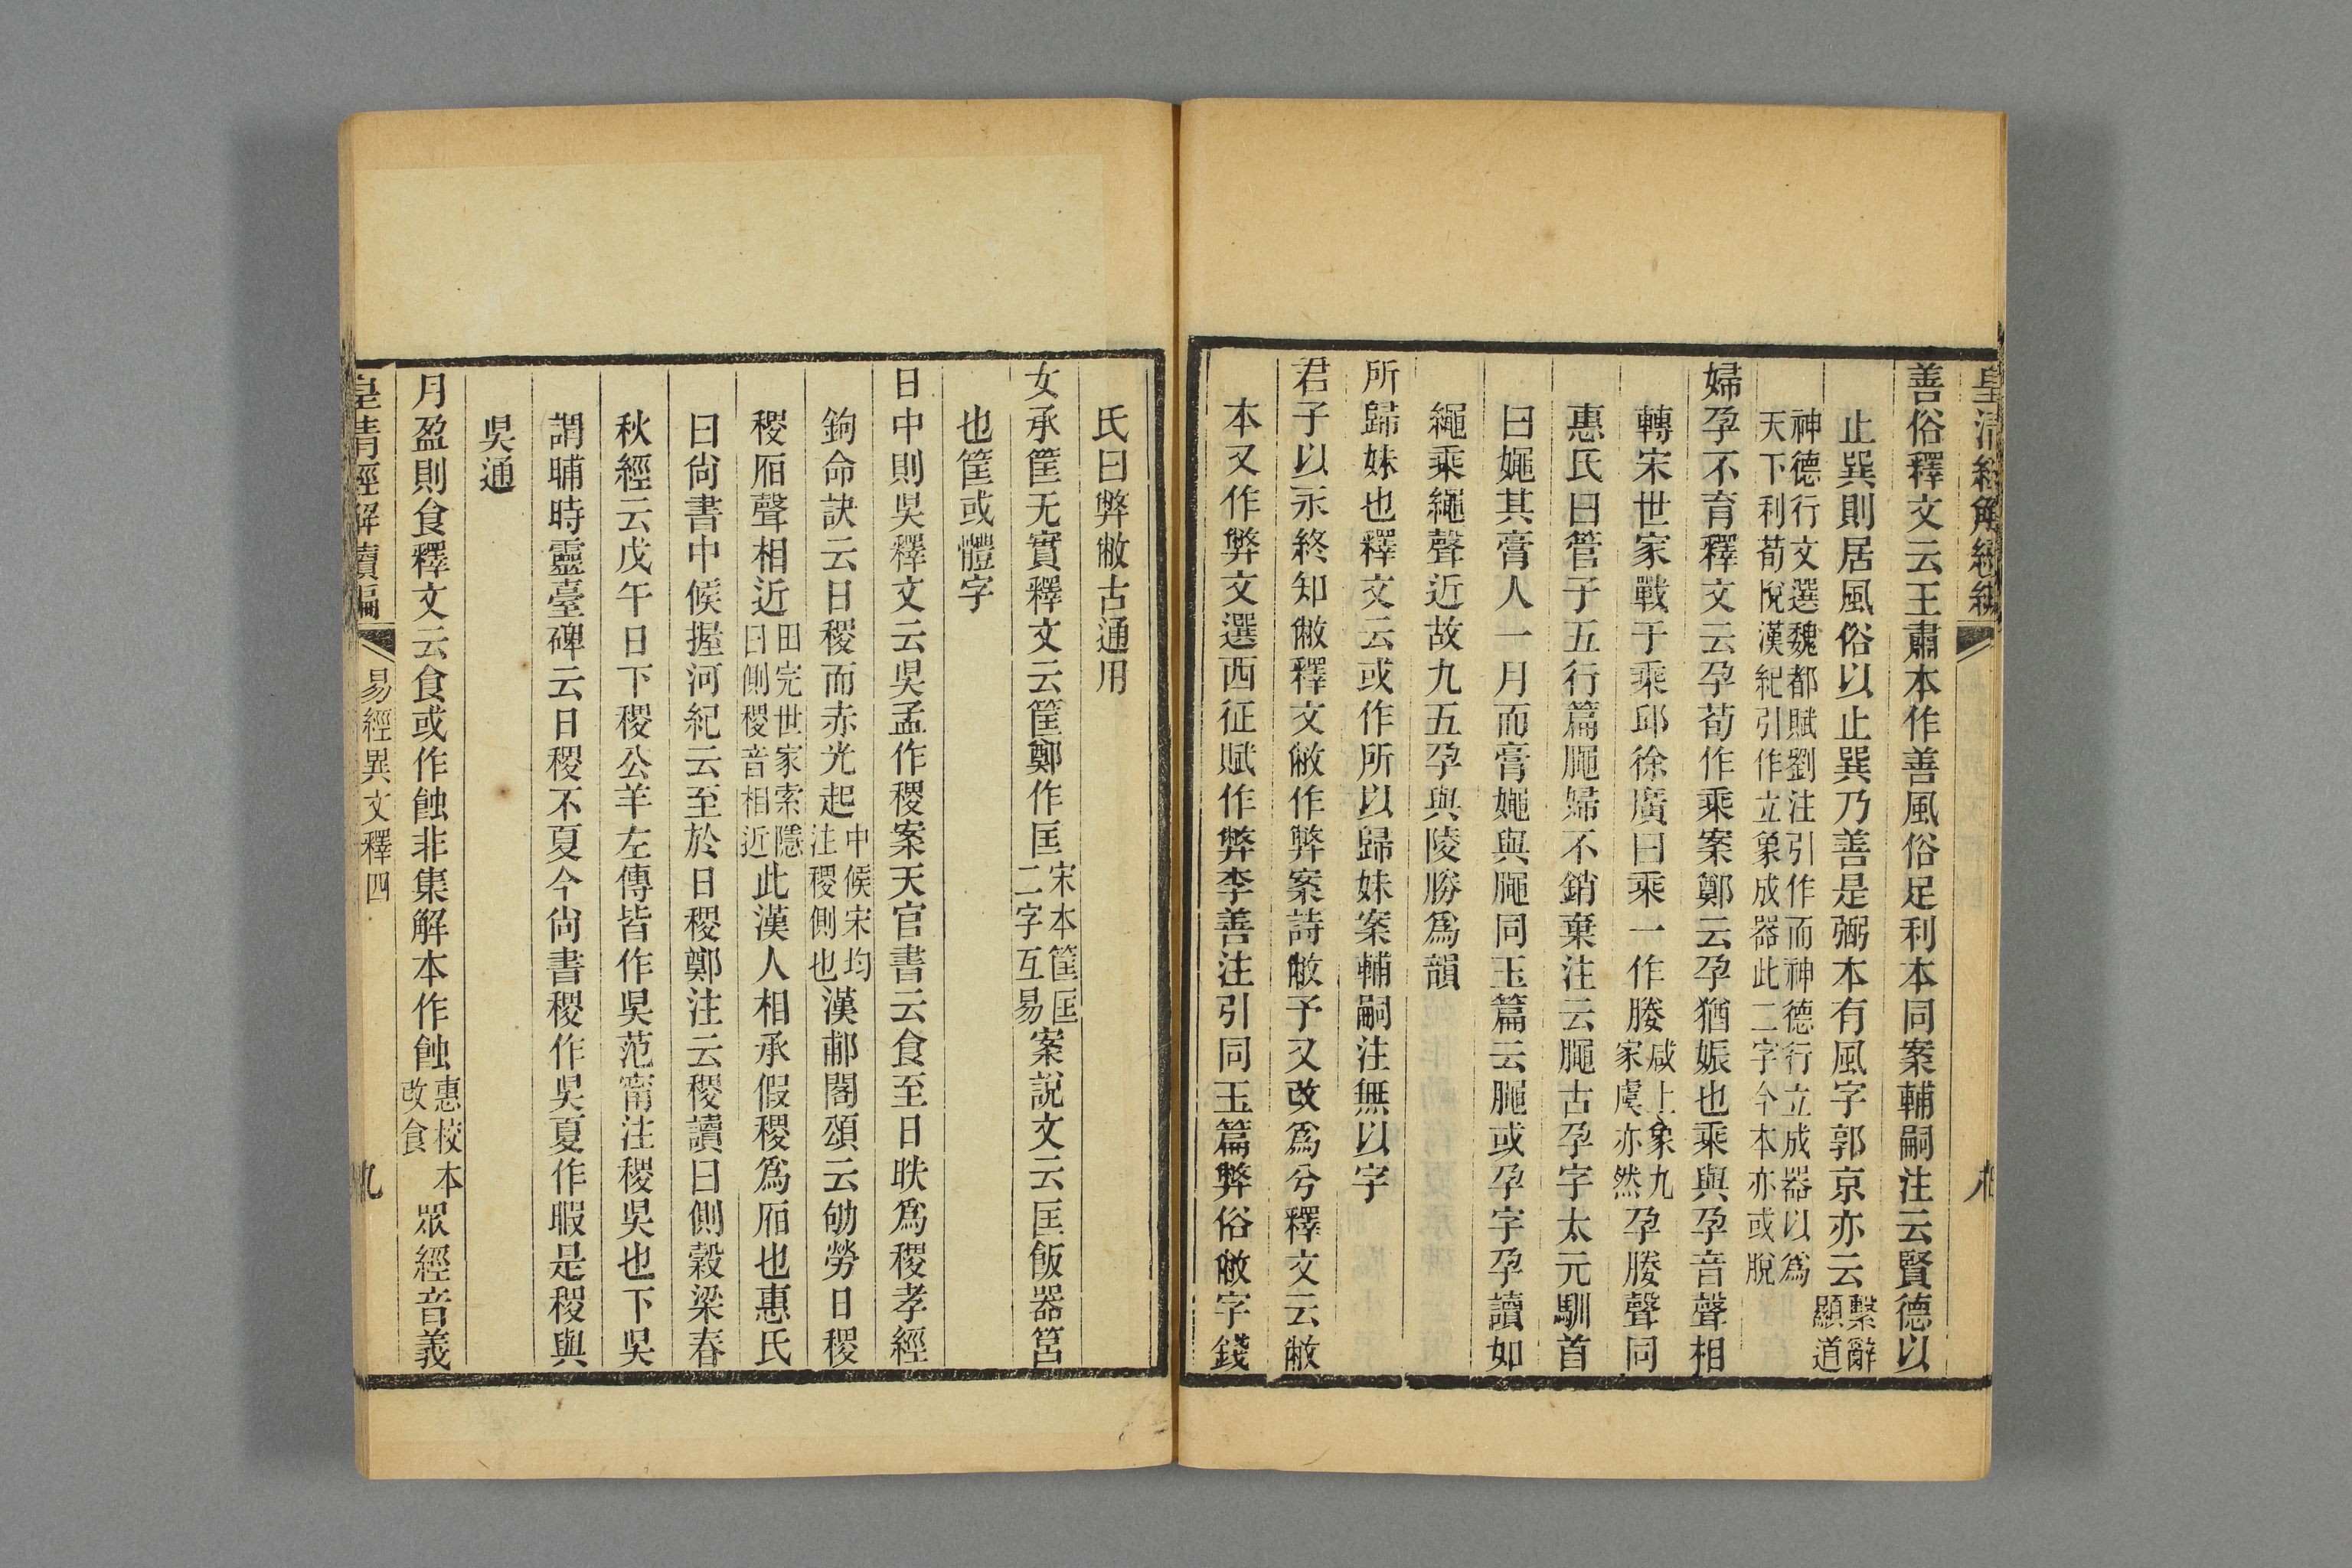 皇清經解續編
善俗釋文云王肅本作善風俗足利本同案輔嗣注云賢德以
止巽則居風俗以止巽乃善是弼本有風字郭京亦云繫辭顯道
神德行文選魏都賦劉注引作而神德行立成器以爲
天下利荀悅漢紀引作立象成器此二字今本亦或脫
婦孕不育釋文云孕荀作乘案鄭云孕猶娠也乘與孕音聲相
轉宋世家戰于乘邱徐廣曰乘一作媵咸上象九家虞亦然孕媵聲同
惠氏曰管子五行篇䵴婦不銷棄注云䵴古孕字太元馴首
曰㛴其膏人一月而膏㛴與䵴同玉篇云䵴或孕字孕讀如
繩乘繩聲近故九五孕與陵勝爲韻
所歸妹也釋文云或作所以歸妹案輔嗣注無以字
君子以永終知敝釋文敝作弊案詩敝予又改爲兮釋文云敝
本又作弊文選西征賦作弊李善注引同玉篇弊俗敝字錢
氏曰弊敝古通用
女承筐无實釋文云筐鄭作匡宋本筐匡二字互易案說文云匡飯器筥
也筐或體字
日中則昃釋文云昃孟作稷案天官書云食至日昳爲稷孝經
鉤命訣云日稷而赤光起中候宋均注稷側也漢郙閣頌云劬勞日稷
稷㫊聲相近田完世家索隱曰側稷音相近此漢人相承假稷爲㫊也惠氏
曰尙書中候握河紀云至於日稷鄭注云稷讀曰側穀梁春
秋經云戊午日下稷公羊左傳皆作昃范甯注稷昃也下昃
謂晡時靈臺碑云日稷不夏今尙書稷作昃夏作暇是稷與
昃通
月盈則食釋文云食或作蝕非集解本作蝕惠校本改食眾經音義
皇清經解續編
易經異文釋四
九